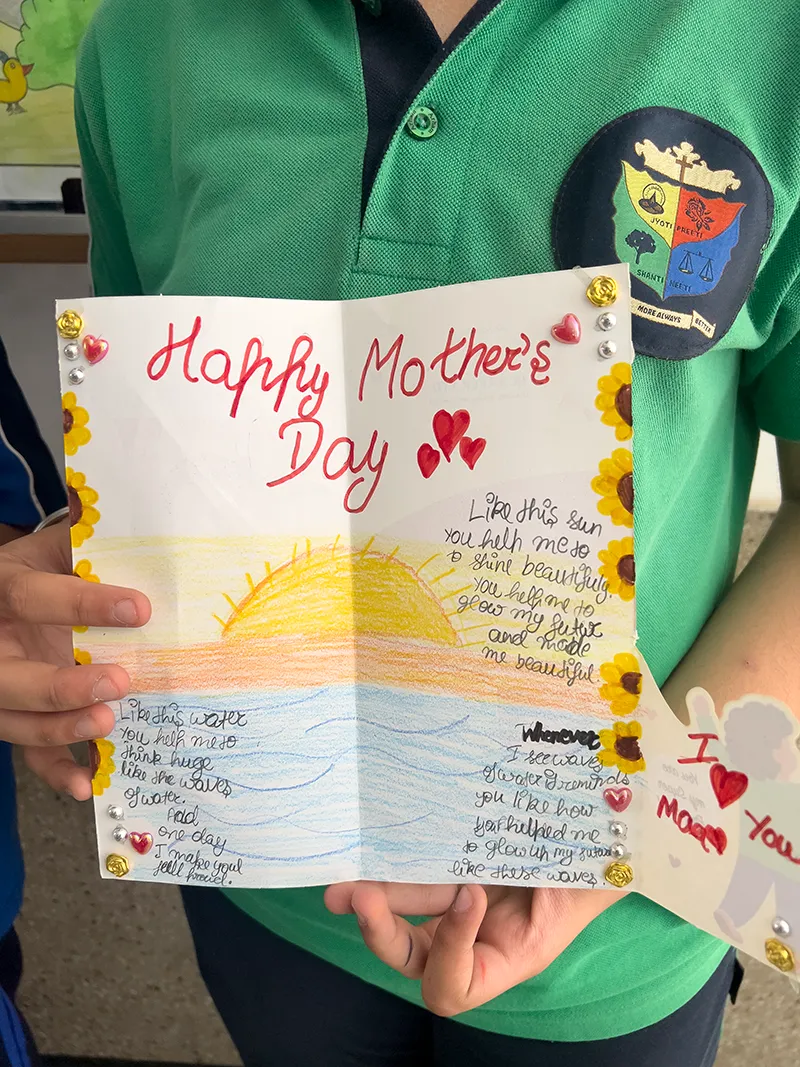 Happy Mother's
Day
Like this sun
you help me to
to shine beautifuly.
you help me to
glow my futur
and made
me beautiful.
Like this water
you help me to
think huge
like the waves
of water.
And
one day
I make you
feell proud.
Whenever
I see waves
of water it reminds
you like how
you helped me
to glow up my futur
like these waves.
I
Maa
You
JYOTI PREETI
SHANTI NEETI
MORE ALWAYS BETTER